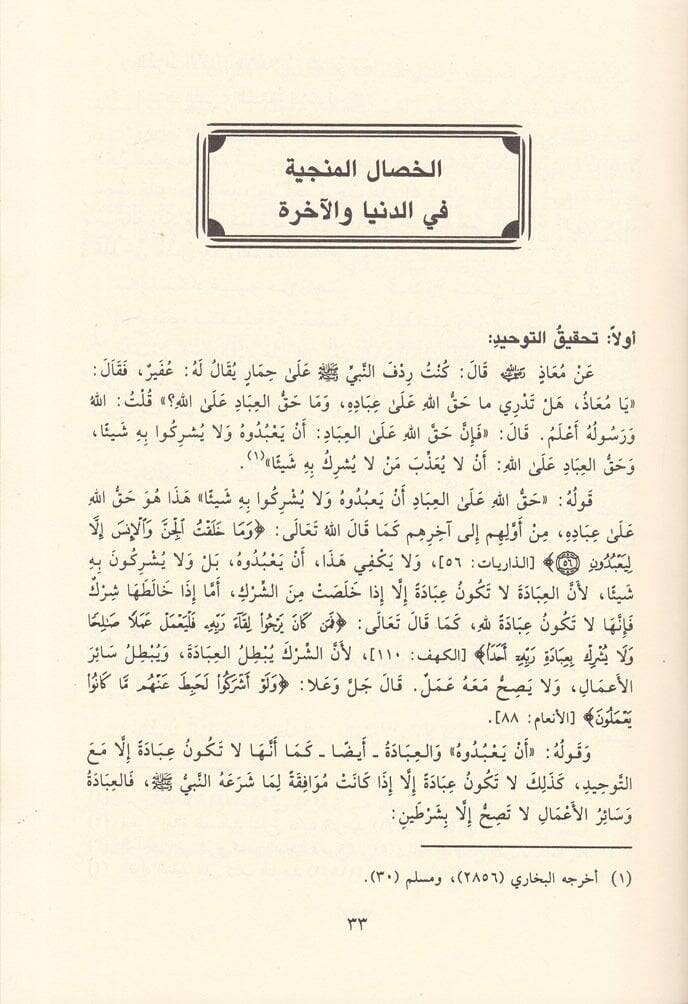 الخصال المنجية
في الدنيا والآخرة
أولاً: تحقيقُ التوحيدِ:
عَنْ مُعَاذٍ رَضِيَ اللَّهُ عَنْهُ قَالَ: كُنْتُ رِدْفَ النَّبِيِّ ﷺ عَلَىٰ حِمَارٍ يُقَالُ لَهُ: عُفَيْرٌ، فَقَالَ:
«يَا مُعَاذُ، هَلْ تَدْرِي ما حَقُّ اللهِ عَلَىٰ عِبَادِهِ، وَمَا حَقُّ العِبَادِ عَلَىٰ اللهِ؟» قُلْتُ: اللهُ
وَرَسُولُهُ أَعْلَمُ. قَالَ: «فَإِنَّ حَقَّ اللهِ عَلَىٰ العِبَادِ: أَنْ يَعْبُدُوهُ وَلَا يُشرِكُوا بِهِ شَيئًا،
وَحَقُّ العِبَادِ عَلَىٰ اللهِ: أَنْ لَا يُعَذِّبَ مَنْ لَا يُشرِكُ بِهِ شَيئًا»(١).
قَولُهُ: «حَقُّ اللهِ عَلَىٰ العِبَادِ أَنْ يَعبُدُوهُ وَلَا يُشْرِكُوا بِهِ شَيئًا» هَذَا هُوَ حَقُّ اللهِ
عَلَىٰ عِبَادِهِ، مِنْ أَوَّلِهِم إِلى آخِرِهِم كَمَا قَالَ اللهُ تَعَالَى: ﴿وَمَا خَلَقْتُ ٱلْجِنَّ وَٱلْإِنسَ إِلَّا
لِيَعْبُدُونِ ۝٥٦﴾ [الذاريات: ٥٦]، وَلَا يَكْفِي هَذَا، أَنْ يَعْبُدُوهُ، بَلْ وَلَا يُشْرِكُونَ بِهِ
شَيئًا، لأَنَّ العِبَادَةَ لَا تَكُونُ عِبَادَةً إِلَّا إِذَا خَلَصَتْ مِنَ الشِّرْكِ، أَمَّا إِذَا خَالَطَهَا شِرْكٌ
فَإِنَّهَا لَا تَكُونُ عِبَادَةً للهِ، كَمَا قَالَ تَعَالَى: ﴿فَمَن كَانَ يَرْجُوا۟ لِقَآءَ رَبِّهِۦ فَلْيَعْمَلْ عَمَلًا صَـٰلِحًا
وَلَا يُشْرِكْ بِعِبَادَةِ رَبِّهِۦٓ أَحَدًۢا﴾ [الكهف: ١١٠]، لأَنَّ الشِّرْكَ يُبْطِلُ العِبَادَةَ، وَيُبْطِلُ سَائِرَ
الأَعمَالِ، وَلَا يَصِحُّ مَعَهُ عَمَلٌ. قَالَ جَلَّ وَعَلا: ﴿وَلَوْ أَشْرَكُوا۟ لَحَبِطَ عَنْهُم مَّا كَانُوا۟
يَعْمَلُونَ﴾ [الأنعام: ٨٨].
وَقَولُهُ: «أَنْ يَعْبُدُوهُ» وَالعِبَادَةُ ـ أَيضًا ـ كَمَا أَنَّهَا لَا تَكُونُ عِبَادَةً إِلَّا مَعَ
التَّوحِيدِ، كَذَلِكَ لَا تَكُونُ عِبَادَةً إِلَّا إِذَا كَانَتْ مُوَافِقَةً لِمَا شَرَعَهُ النَّبِيُّ ﷺ، فَالعِبَادَةُ
وَسَائِرُ الأَعْمَالِ لَا تَصِحُّ إِلَّا بِشَرطَينِ:
(١) أخرجه البخاري (٢٨٥٦)، ومسلم (٣٠).
٣٣